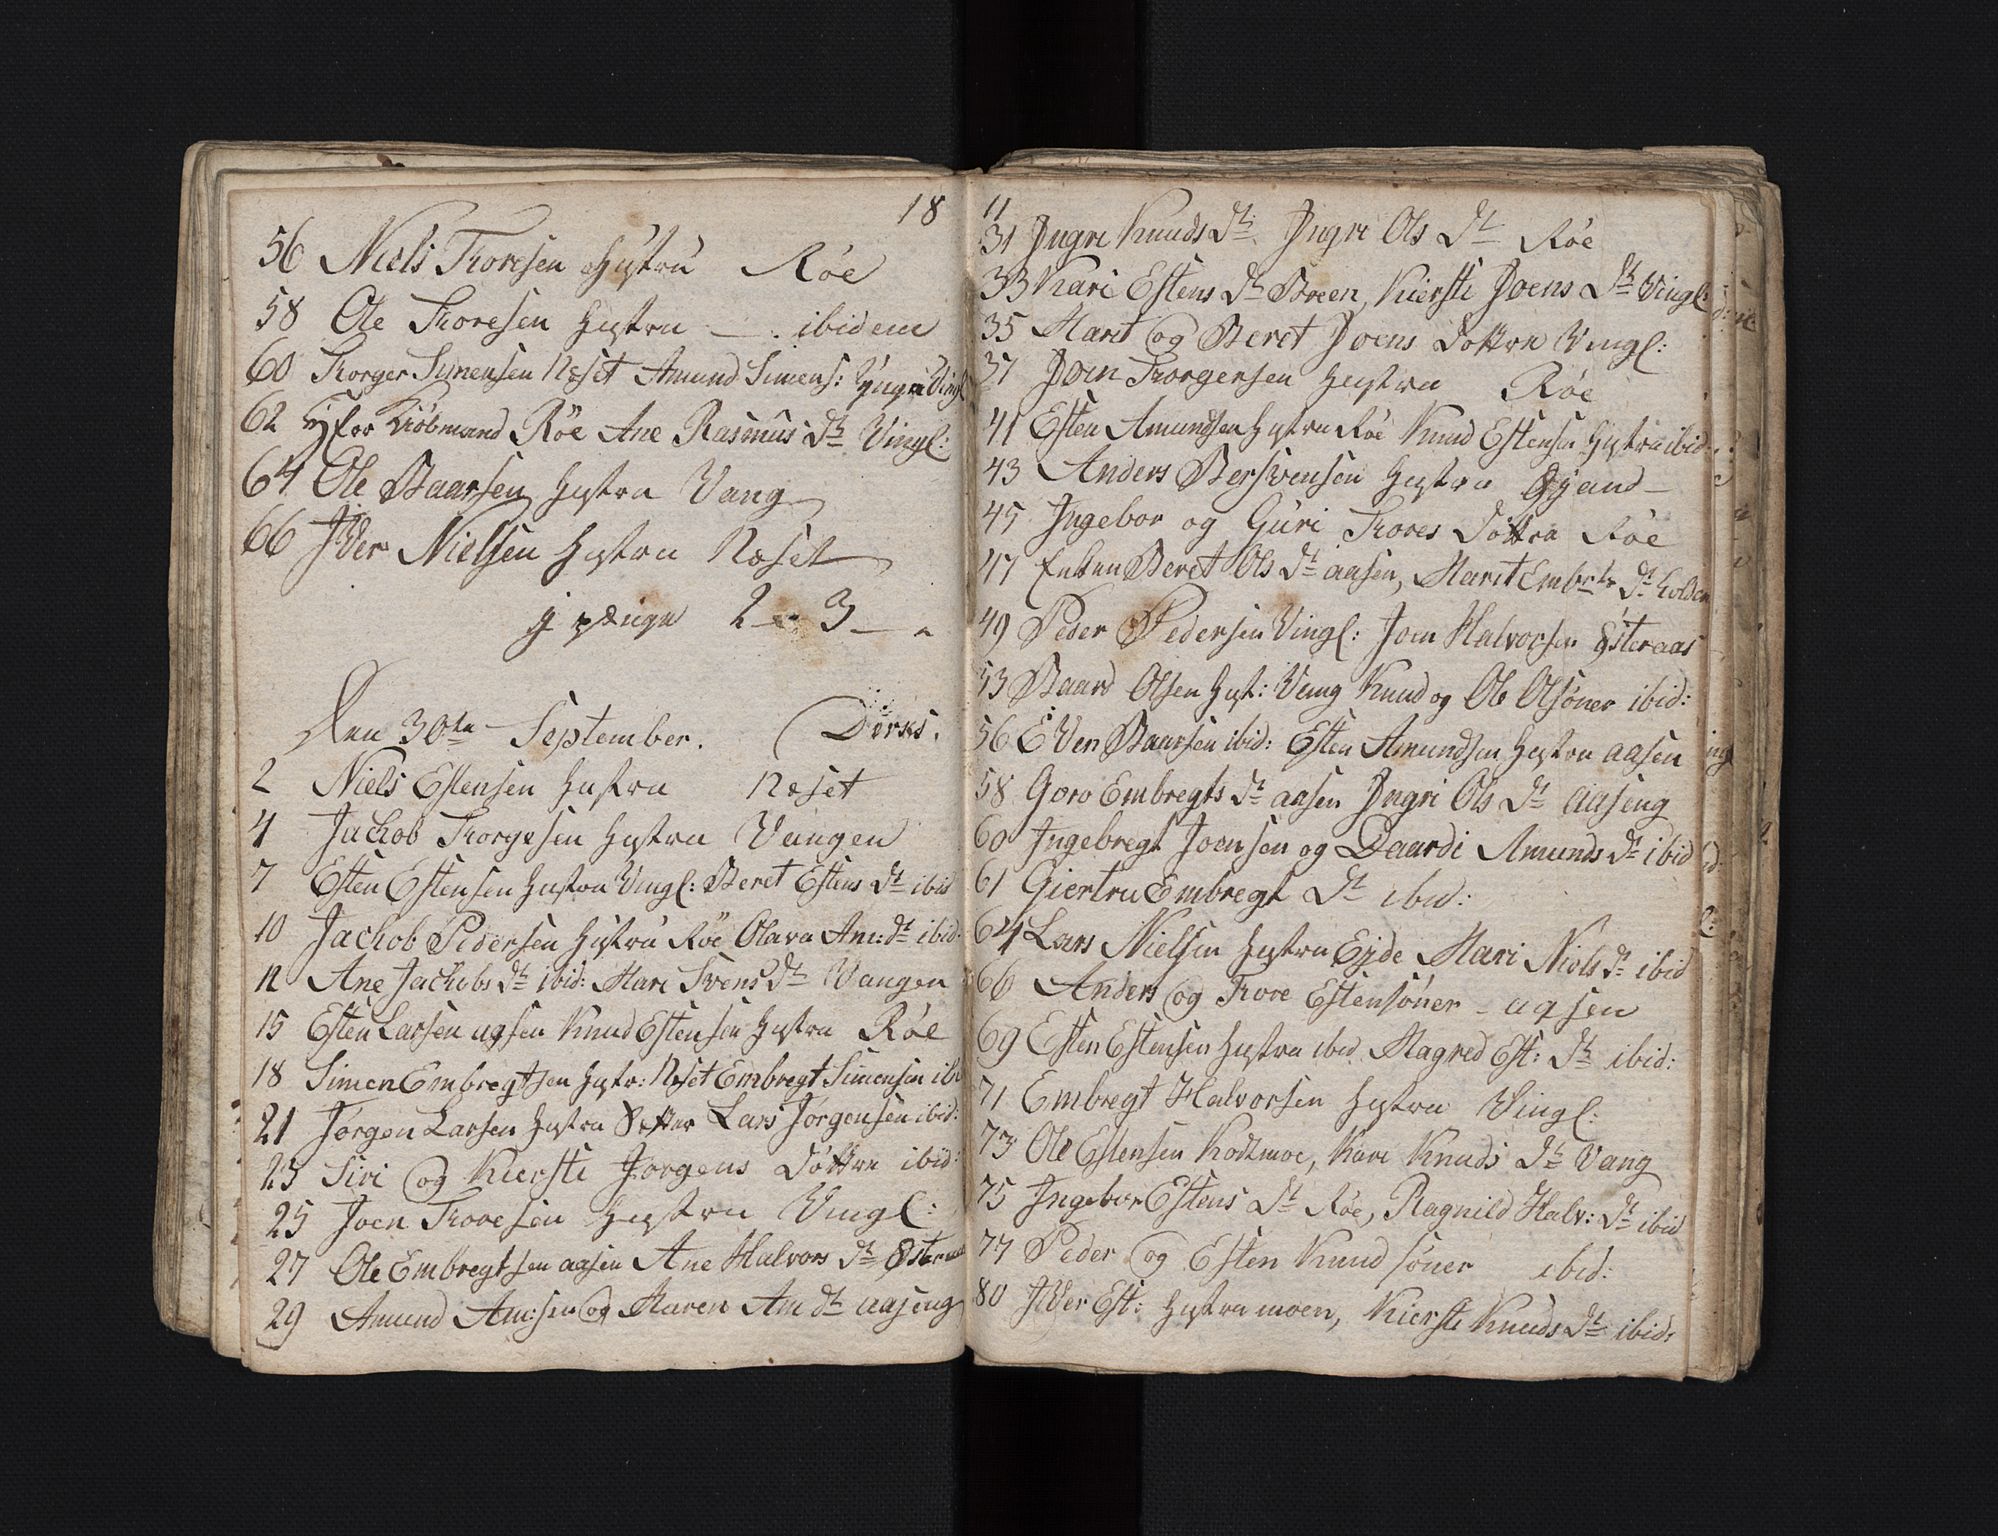 18
56 Niels Toresen Hustru Røe
58 Ole Toresen Hustru — ibidem
60 Torger Simensen Næset Amund Simens: Vingl
62 Kiøbmand Røe Ane Rasmus Dt Vingl:
64 Ole Baarsen Hustru Vang
66 Iver Nielsen Hustru Næset
2 — 3 —
Den 30te September. Dørks.
2 Niels Estensen Hustru Næset
4 Jachob Torgesen Hustru Vangen
7 Esten Estensen Hustru Vingl: Beret Estens Dt ibid
10 Jachob Pedersen Hustru Røe Olava Am: dt ibid:
12 Ane Jachobs Dt ibid: Mari Svens Dt Vangen
15 Esten Larsen aasen Knud Estensen Hustru Røe
18 Simen Embregtsen Hustr: Næset Embregt Simensen ibi
21 Jørgen Larsen Hustru Lars Jørgensen ibid:
23 Siri og Kiersti Jørgens Døttre ibid:
25 Joen Toresen Hustru Vingl:
27 Ole Embregtsen aasen Ane Halvors Dt
29 Amund Am:sen og Karen Am dt aaseng
11
31 Ingri Knuds Dt. Ingri Ols Dt Røe
33 Kari Estens Dt Breen, Kiersti Joens Dt Vingl:
35 Marit og Beret Joens Døttre Vingl:
37 Joen Torgersen Hustru Røe
41 Esten Amundsen Hustru Røe Knud Estensen Hustru ibid:
43 Anders Berсvensen Hustru —
45 Ingebor og Guri Tores Døttre Røe
47 Enken Beret Ols Dt aasen, Marit Embrts Dt holden
49 Peder Pedersen Vingl: Joen Halvorsen Østeraas
53 Baard Olsen Hust: Vang Knud og Ole Olsøner ibid:
56 Even Baarsen ibid: Esten Amundsen Hustru aasen
58 Goro Embregts Dt aasen Ingri Ols Dt aaseng
60 Ingebregt Joensen og Daardi Amunds Dt ibid
61 Giertru Embregt Dt ibid:
64 Lars Nielsen Hustru Eyde Mari Niels Dt ibid
66 Anders og Tore Estensøner – aasen
69 Esten Estensen Hustru ibid Magred Est: Dt ibid:
71 Embregt Halvorsen Hustru Vingl:
73 Ole Estensen Kodtmoe, Kari Knuds Dt Vang
75 Ingebor Estens Dt Røe, Ragnild Halv: Dt ibid
77 Peder og Esten Knudsøner ibid:
80 Iver Est: Hustru moen, Kiersti Knuds Dt ibid: